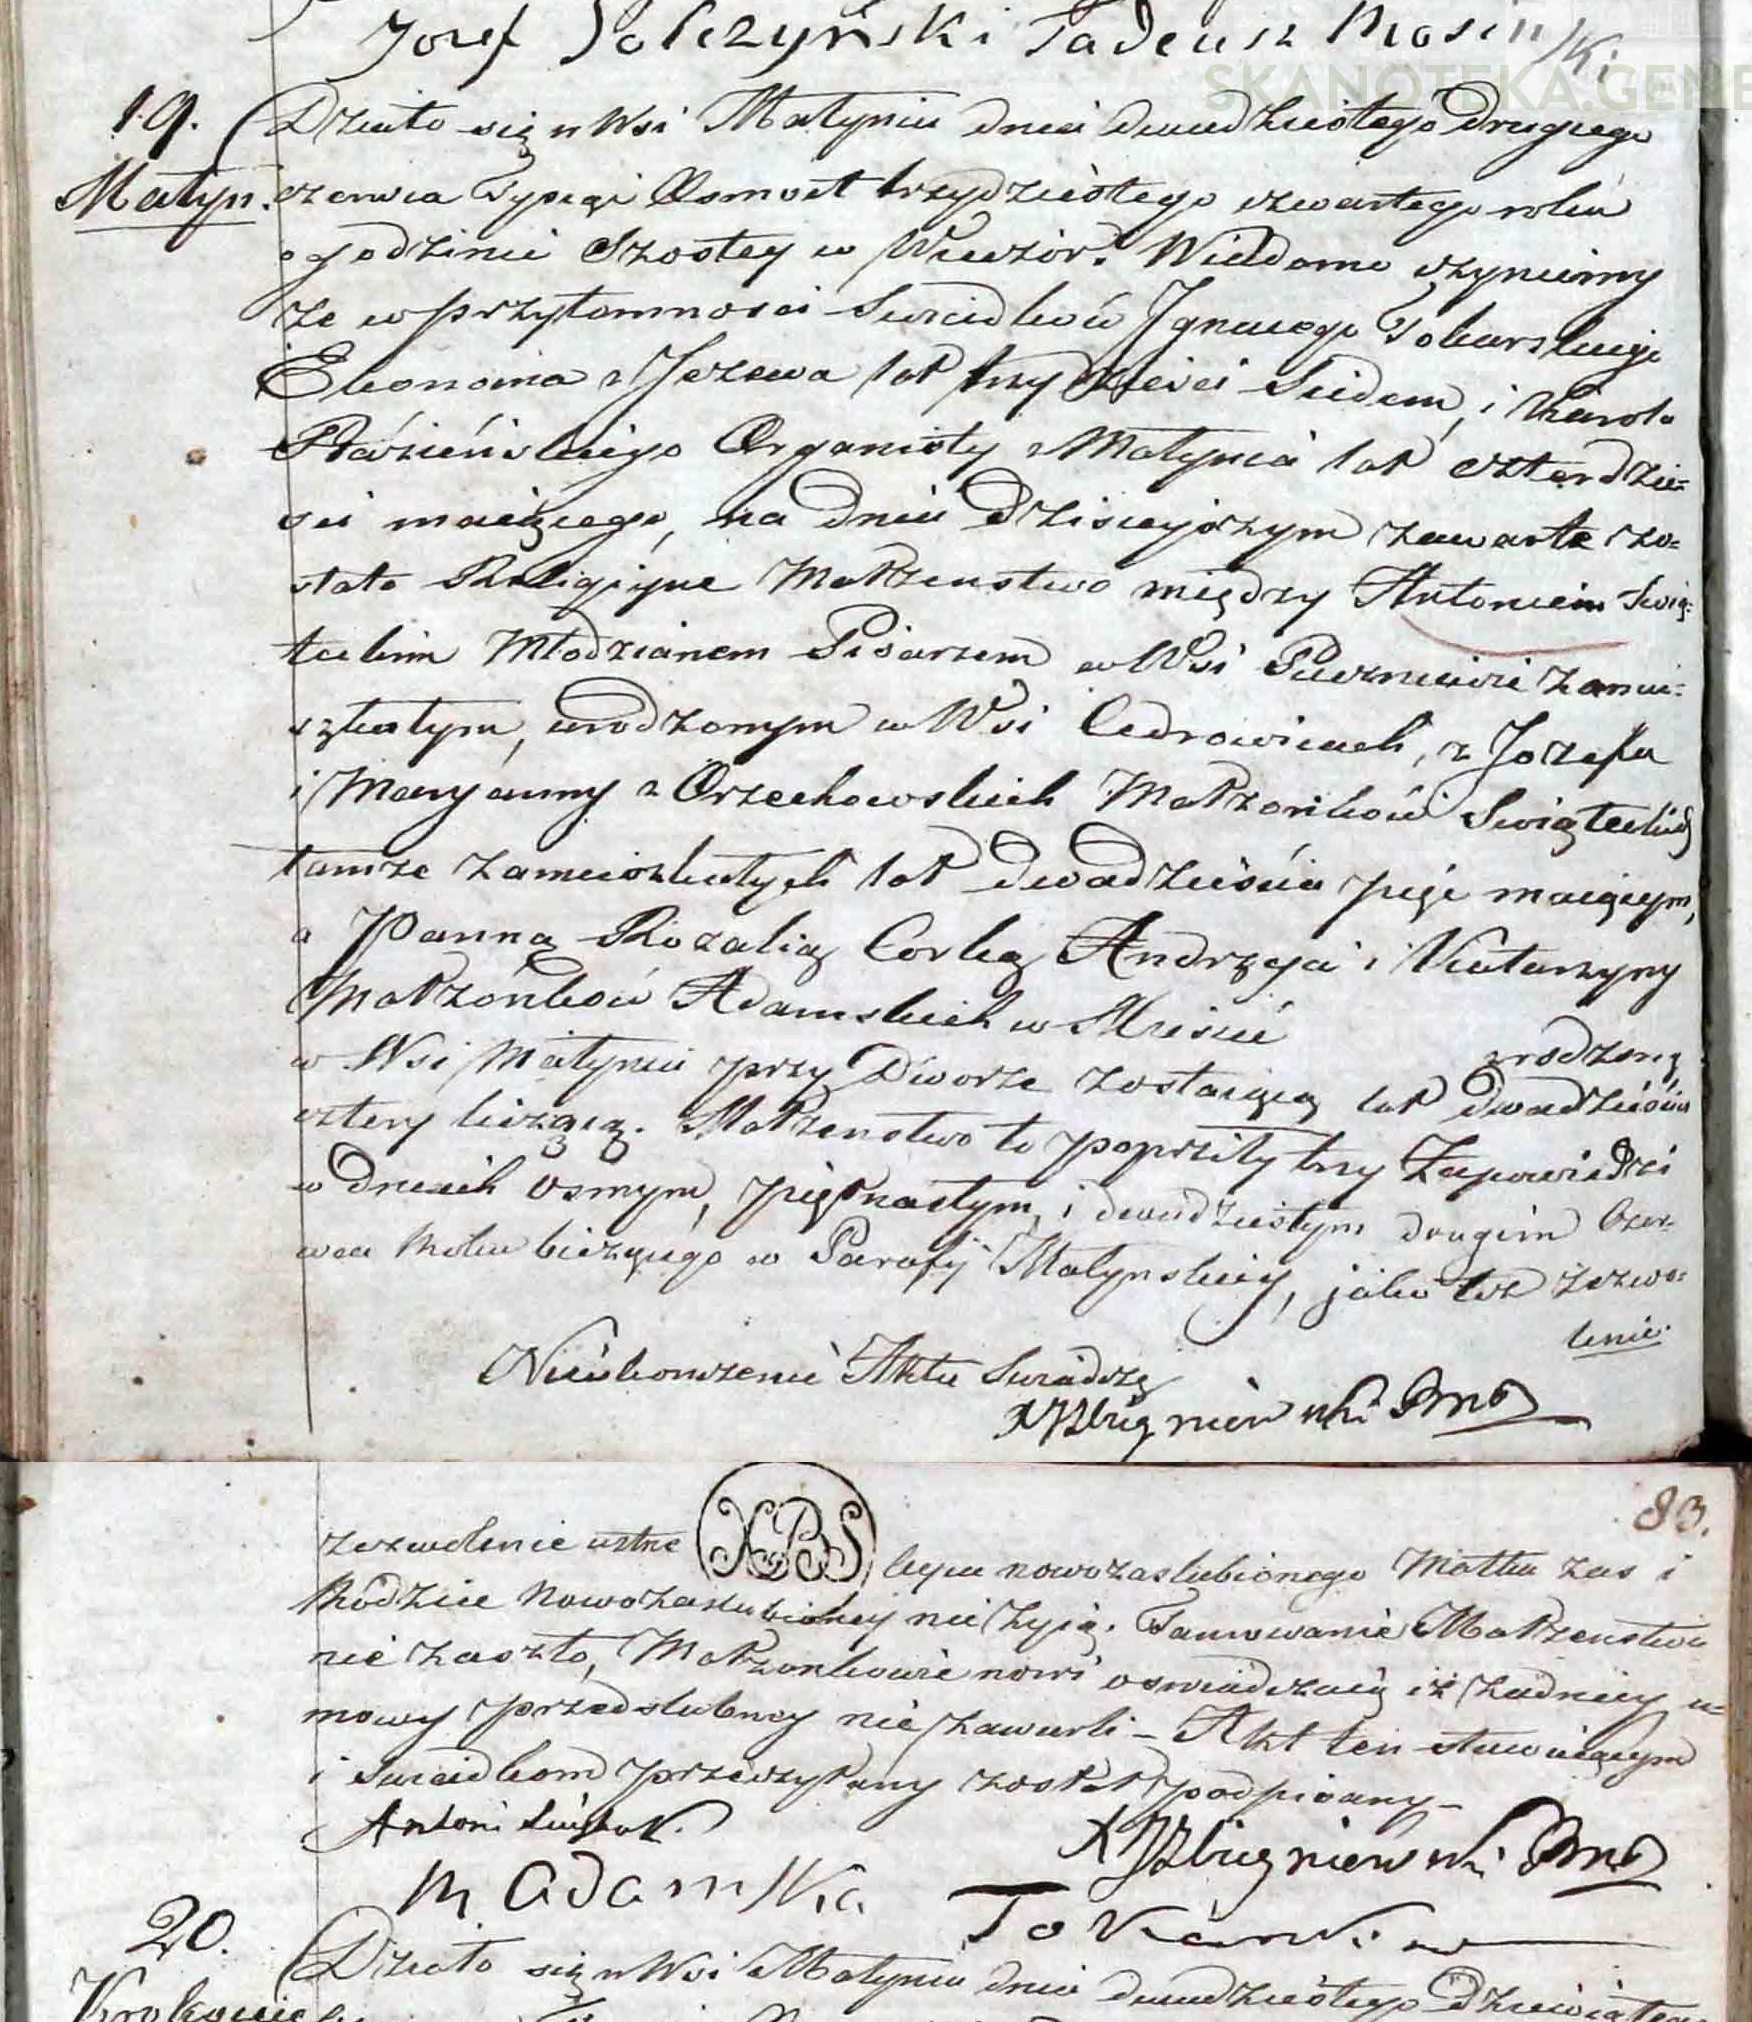 Jozef Tadeusz
SKANOTEKA.GENE
19. Działo się w Wsi Małyniu dnia dwudziestego drugiego
Małyń. czerwca Tysiąc Osmset trzydziestego czwartego roku
o godzinie Szostey w Wieczór. Wiadomo czyniemy
że w przytomnosci Swiadków Jgnacego Tokarskiego
Ekonoma z Jeżewa lat trzydzieści Siedem, i Karola
Organisty z Małynia lat czterdzie=
sci maiącego, na dniu dzisieyszym zawarte zo=
stało Religijne Małżenstwo między Antonim Swią=
teckim Młodzianem Pisarzem w Wsi Puczniewie zamie=
szkałym, urodzonym w Wsi Cedrowicach, z Jozefa
i Maryanny z Orzechowskich Małżonków Swiąteckich
tamże zamieszkałych lat dwadzieścia pięć maiącym,
a Panną Rozalią Corką Andrzeja i Katarzyny
Małżonków Adamskich w Mieście
zrodzoną
w Wsi Małyniu przy Dworze zostaiącą lat dwadzieścia
cztery liczącą. Małżenstwo to poprzedziły trzy Zapowiedzi
w dniach osmym, piętnastym, i dwudziestym drugim Czer=
wca Roku bieżącego w Parafij Małynskiey, jako też zezwo=
lenie.
Nieukonczenie Aktu Swiadczę
X Zbigniewski
83.
zezwolenie ustne XBS Oyca nowozaslubionego Matka zas i
Rodzice Nowozaslubioney nie żyią. Tamowanie Małżenstwa
nie zaszło, Małżonkowie nowi oswiadczaią iż żadney u=
mowy przedslubney nie zawarli – Akt ten stawaiącym
i Swiadkom przeczytany został podpisany –
Antoni
X Zbigniewski
R Adamska
Tokarski
20. Działo się w Wsi Małyniu dnia dwudziestego dziewiątego